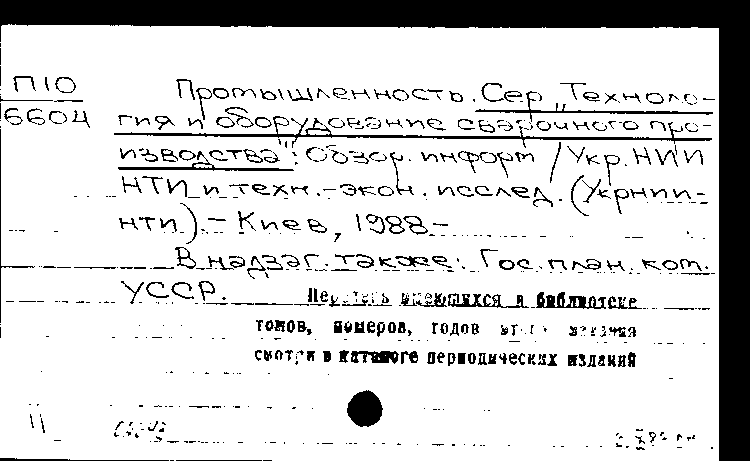 П10
6604
Промышленность. Сер „Техноло-
гия и оборудование сварочного про-
изводства": Обзор. информ / Укр. НИИ
НТИ и техн.-экон. исслед. (Укрнии-
нти). – Киев, 1988–
В надзаг. также: Гос. план. ком.
УССР.
Перечень имеющихся в библиотеке
томов, номеров, годов этого издания
смотри в каталоге периодических изданий
11